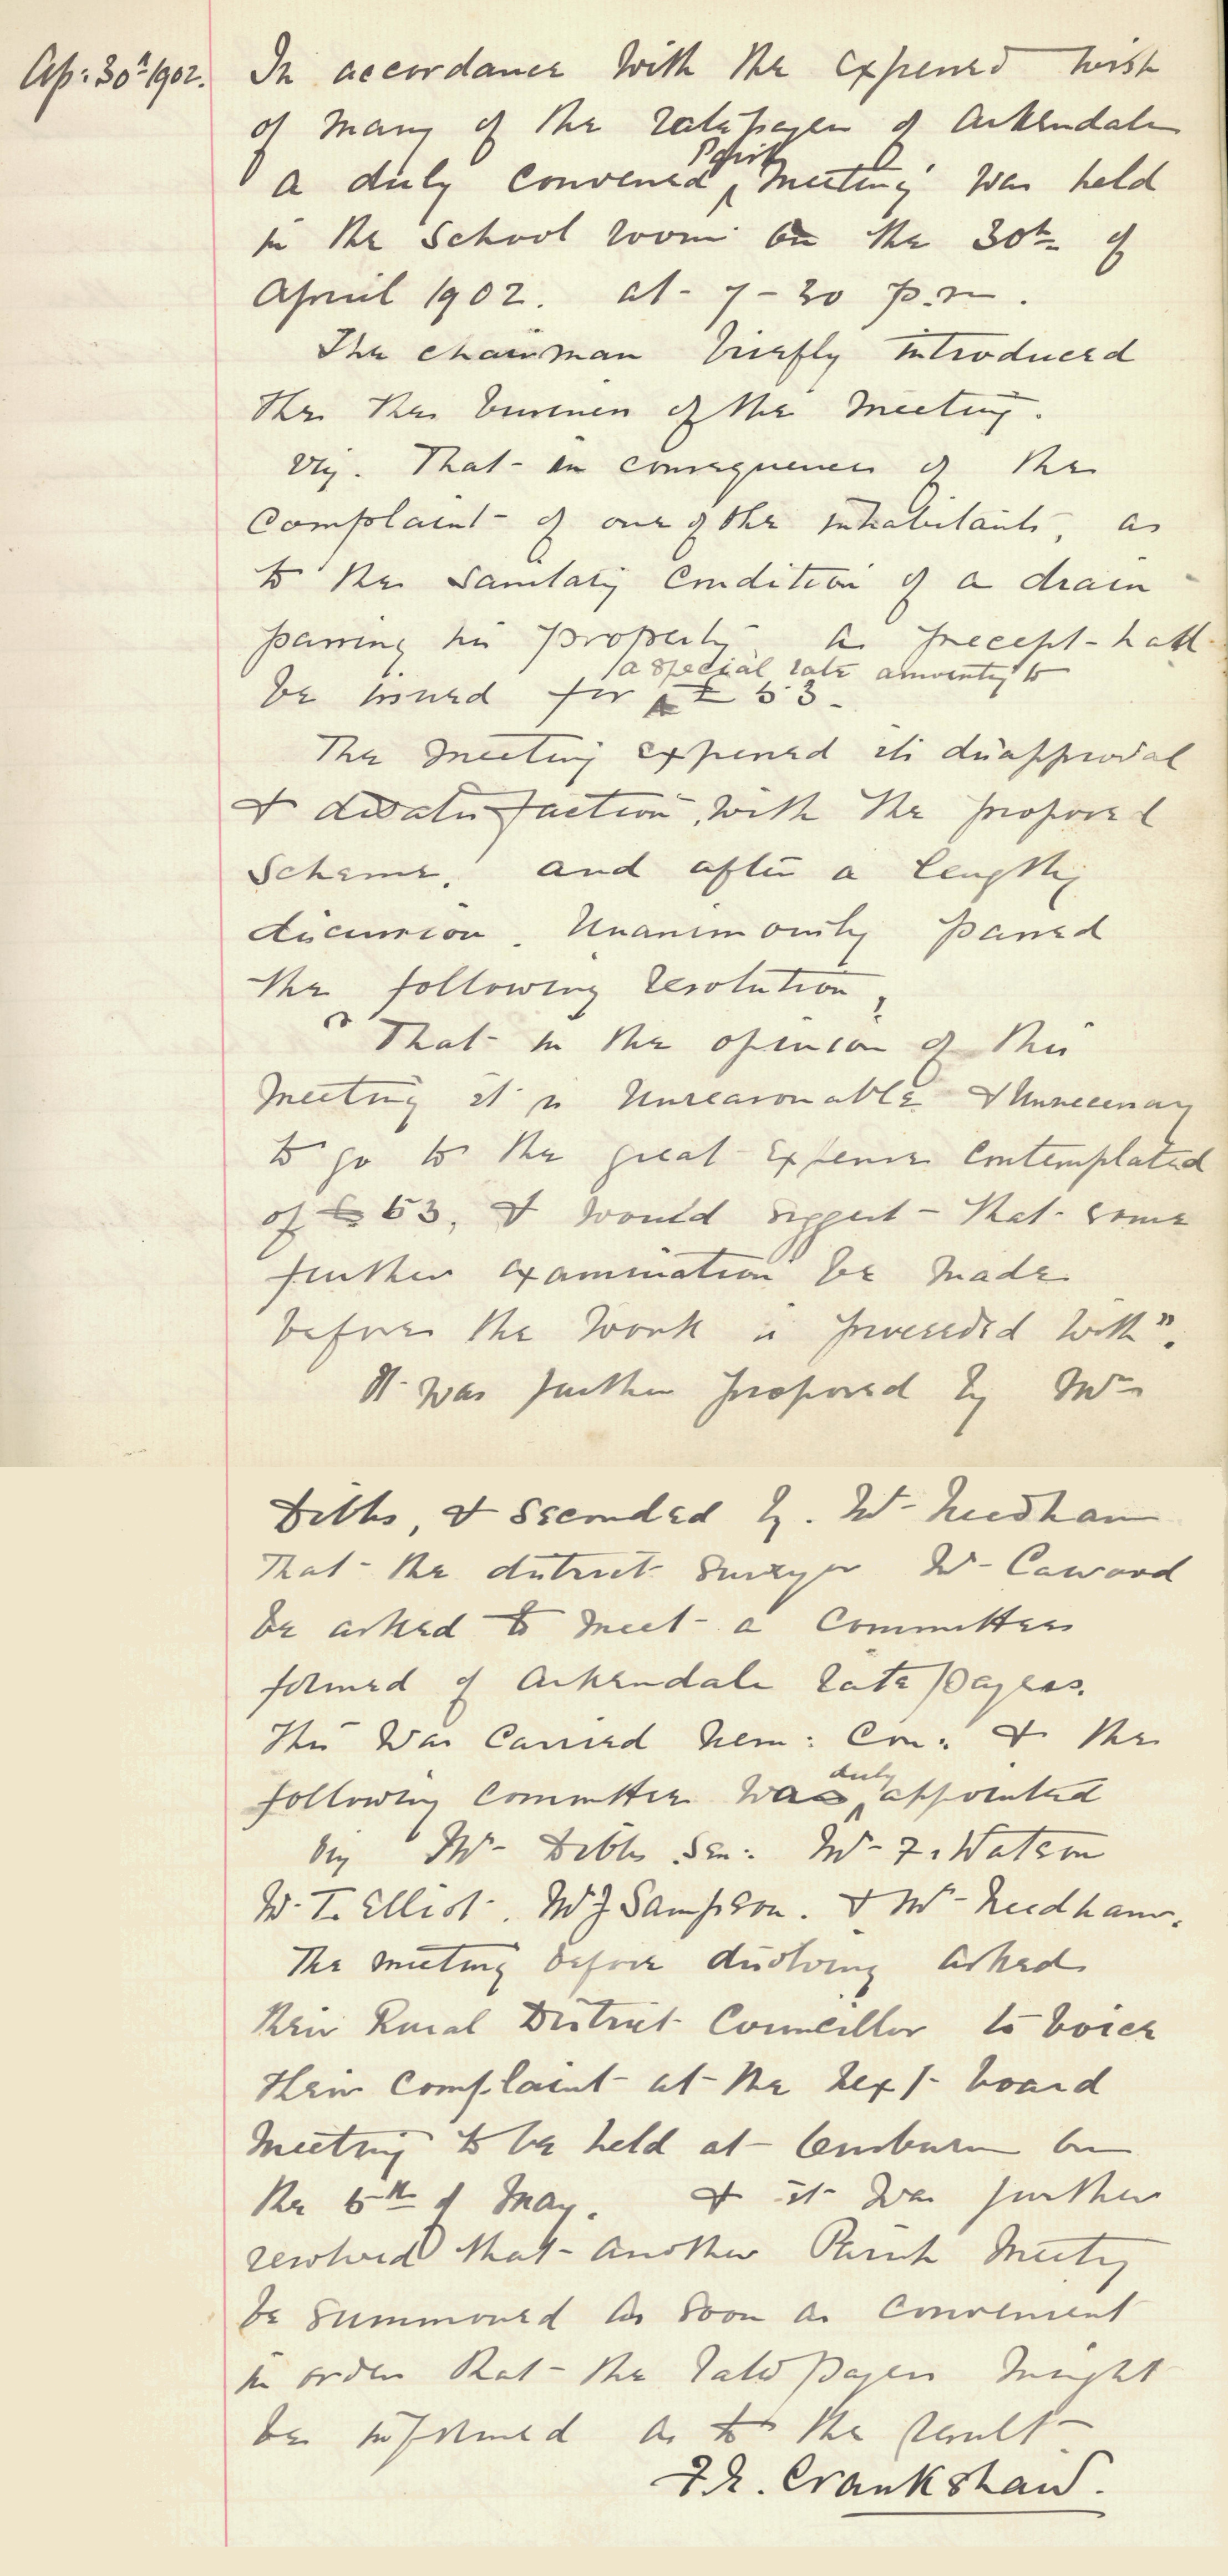 Ap: 30th 1902.
In accordance with the expressed wish
of many of the ratepayers of Arkendale
a duly convened Parish meeting was held
in the School room on the 30th of
April 1902. at 7-30 p.m.
The chairman briefly introduced
the the business of the meeting.
viz. That in consequence of the
complaint of one of the inhabitants, as
to the sanitary condition of a drain
passing his property a precept had
be issued for a special rate amounting to £63.
The meeting expressed its disapproval
& dissatisfaction, with the proposed
scheme, and after a lengthy
discussion, unanimously passed
the following resolution,
"That in the opinion of this
meeting it is unreasonable & unnecessary
to go to the great expense contemplated
of £63, & would suggest that some
further examination be made
before the work is proceeded with".
It was further proposed by Mr
Dibbs, & seconded by Mr Needham
That the district surveyor Mr Caward
be asked to meet a committee
formed of Arkendale rate payers.
This was carried nem: con: & the
following committee was duly appointed
viz Mr Dibbs Sen: Mr F. Watson
W. T. Elliot. W J Sampson. & Mr Needham.
The meeting before dissolving asked
their Rural District Councillor to voice
their complaint at the next board
meeting to be held at Ouseburn on
the 6th of May. & it was further
resolved that another Parish Meeting
be summoned as soon as convenient
in order that the ratepayers might
be informed as to the result
Crankshaw.